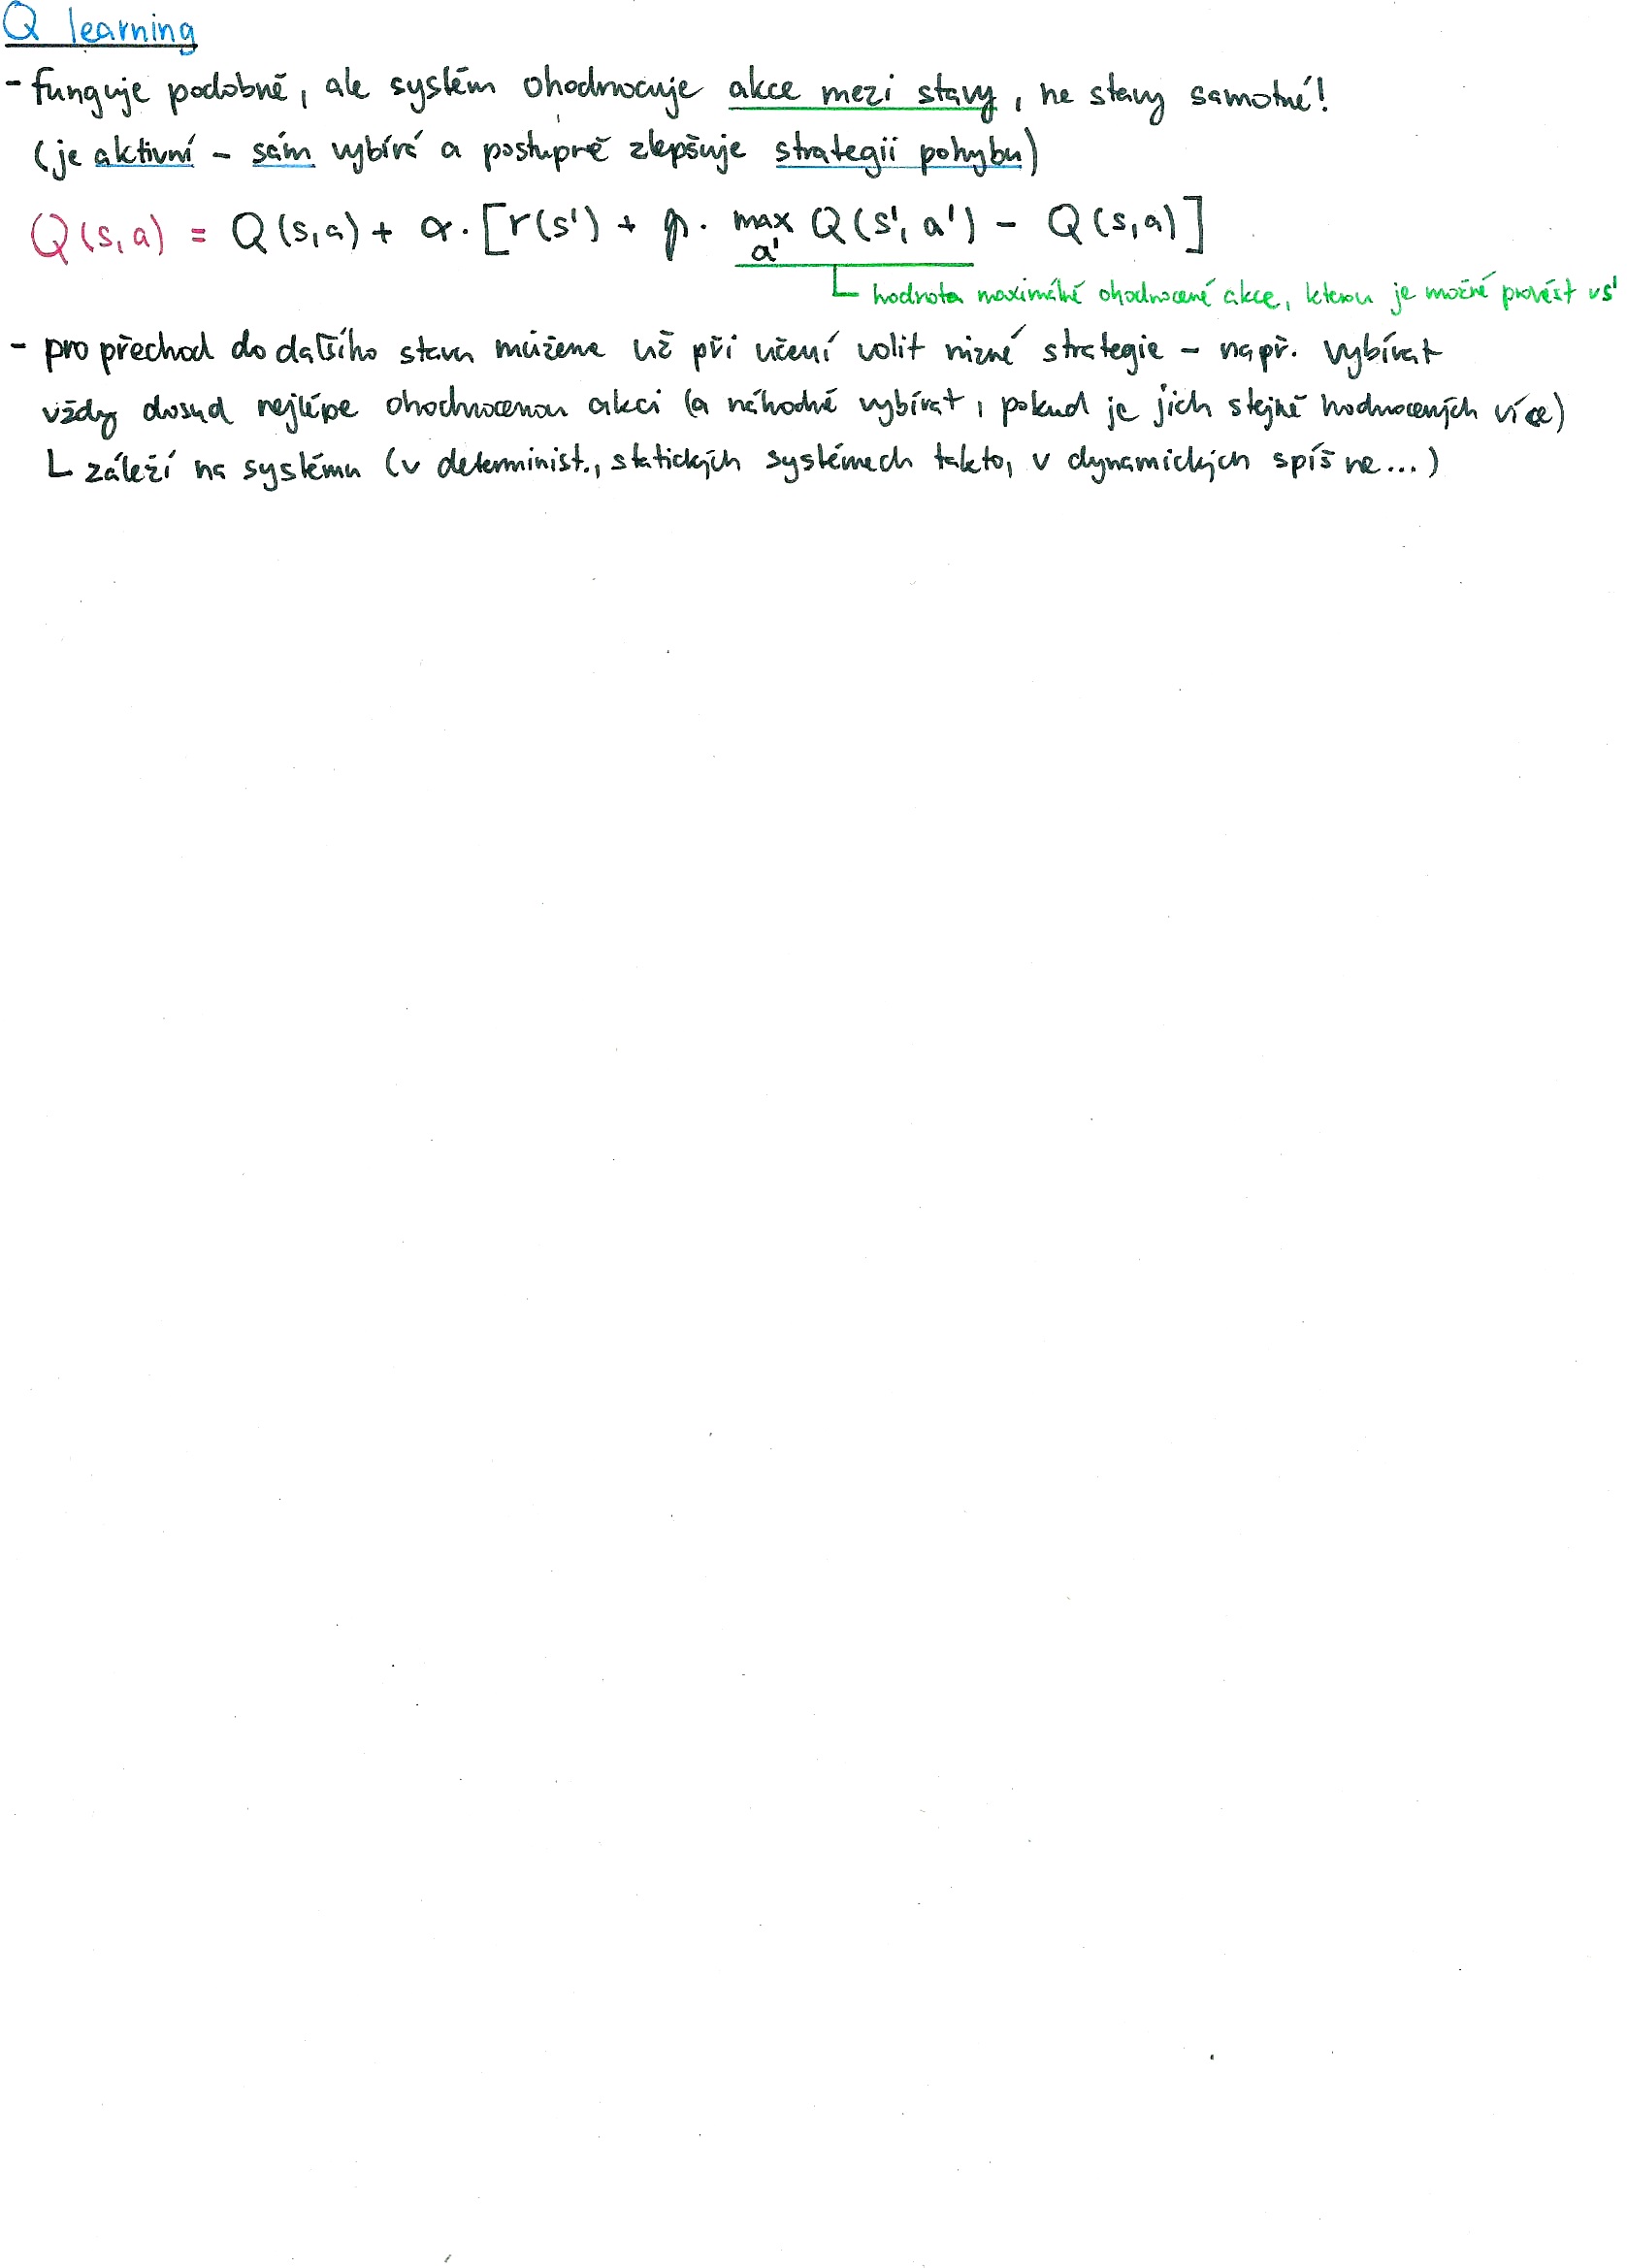 Q learning
- funguje podobně, ale systém ohodnocuje akce mezi stavy, ne stavy samotné!
(je aktivní - sám vybírá a postupně zlepšuje strategii pohybu)
Q(s,a) = Q(s,a) + α · [r(s') + γ · max Q(s', a') - Q(s,a)]
a'
└ hodnota maximálně ohodnocené akce, kterou je možné provést v s'
- pro přechod do dalšího stavu můžeme už při učení volit různé strategie - např. vybírat
vždy dosud nejlépe ohodnocenou akci (a náhodně vybírat, pokud je jich stejně hodnocených více)
└ záleží na systému (v determinist., statických systémech takto, v dynamických spíš ne...)